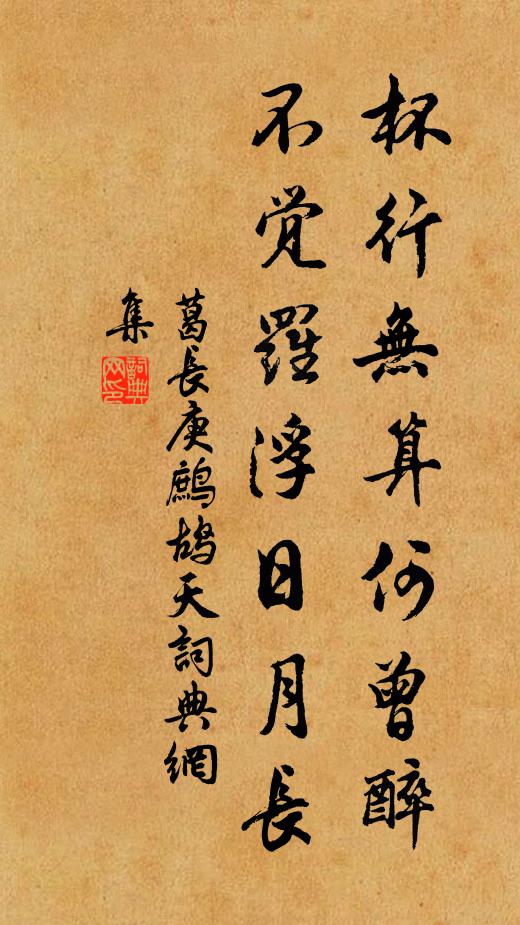 杯行無算何曾醉
不覺羅浮日月長
葛長庚鷓鴣天詞典網
集
詞典
网印